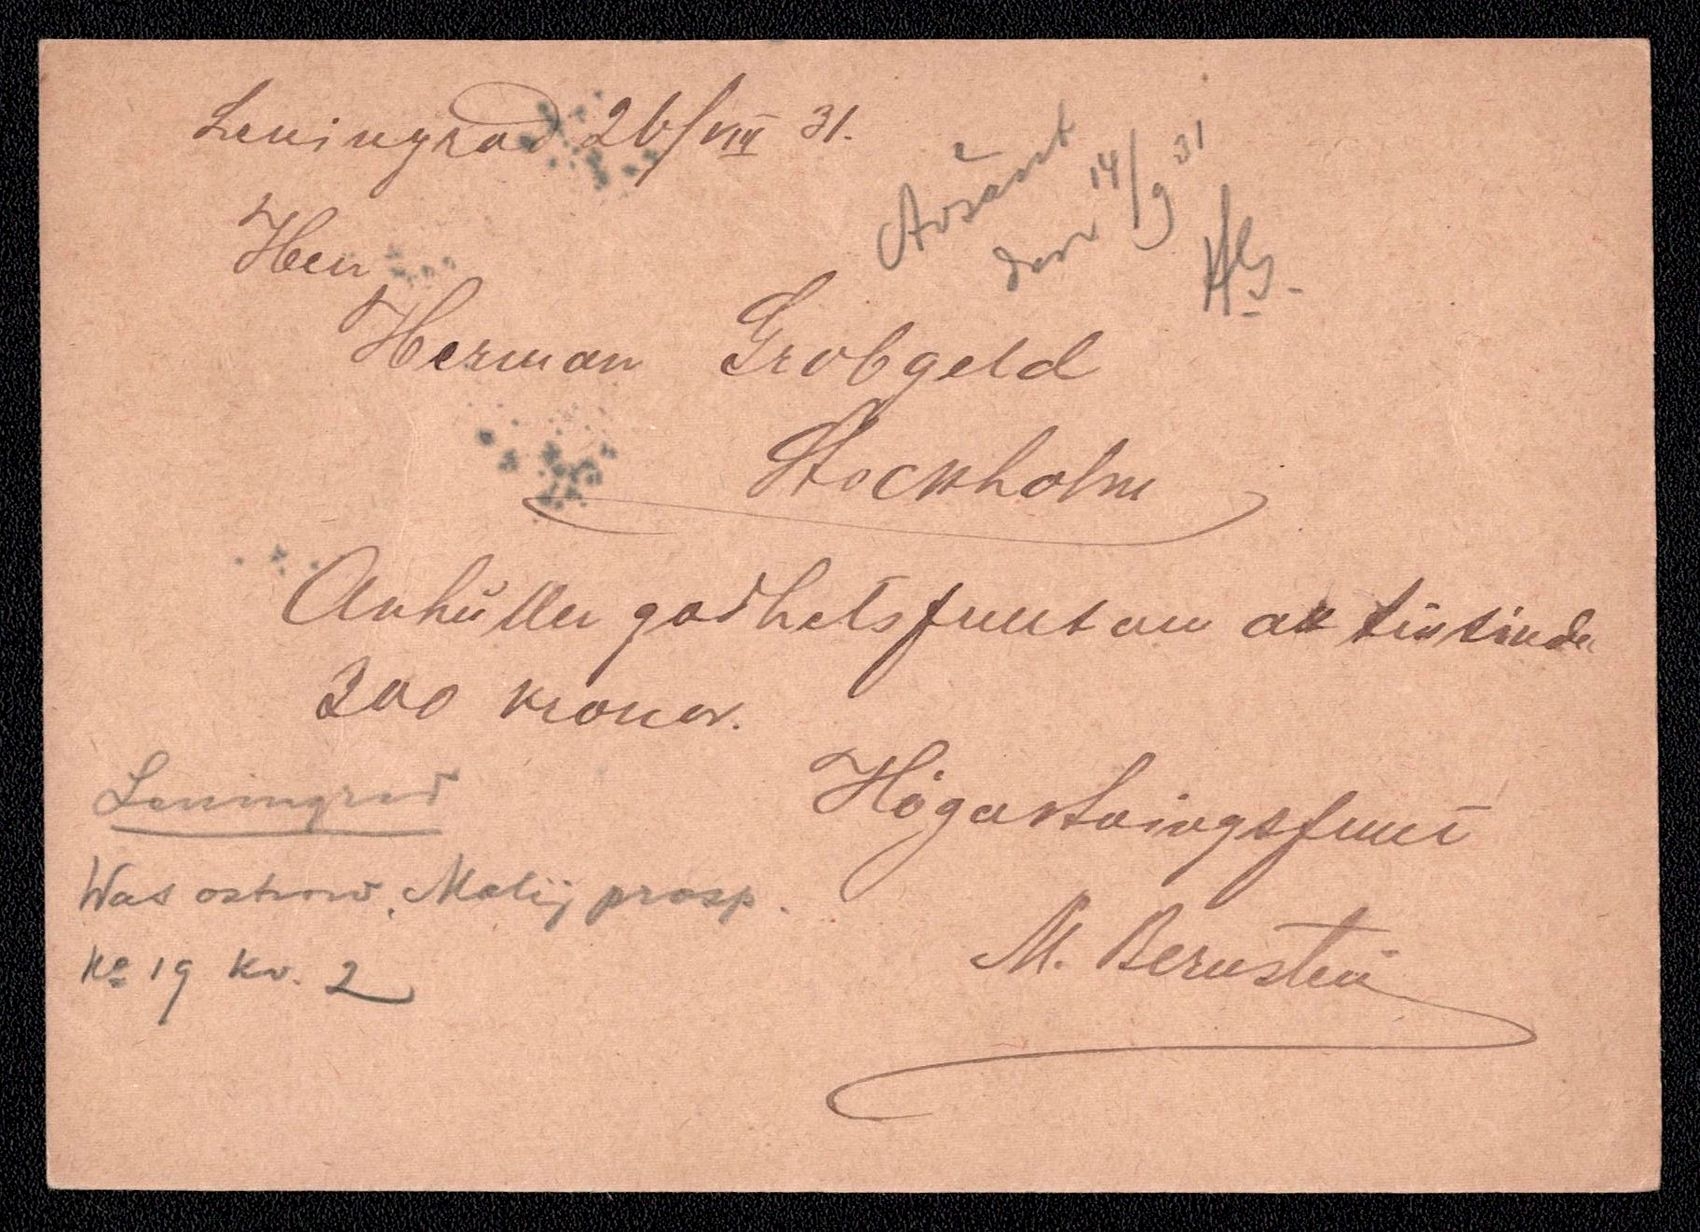 Leningrad 26/VIII 31.
Avsänt
den 14/9 31
HG.
Herr
Herman Grobgeld
Stockholm
Anhåller godhetsfullt om att tillsända
300 kronor.
Högaktningsfullt
M. Bernstein
Leningrad
Was ostrow. Malij prosp.
No 19 Kv. 2